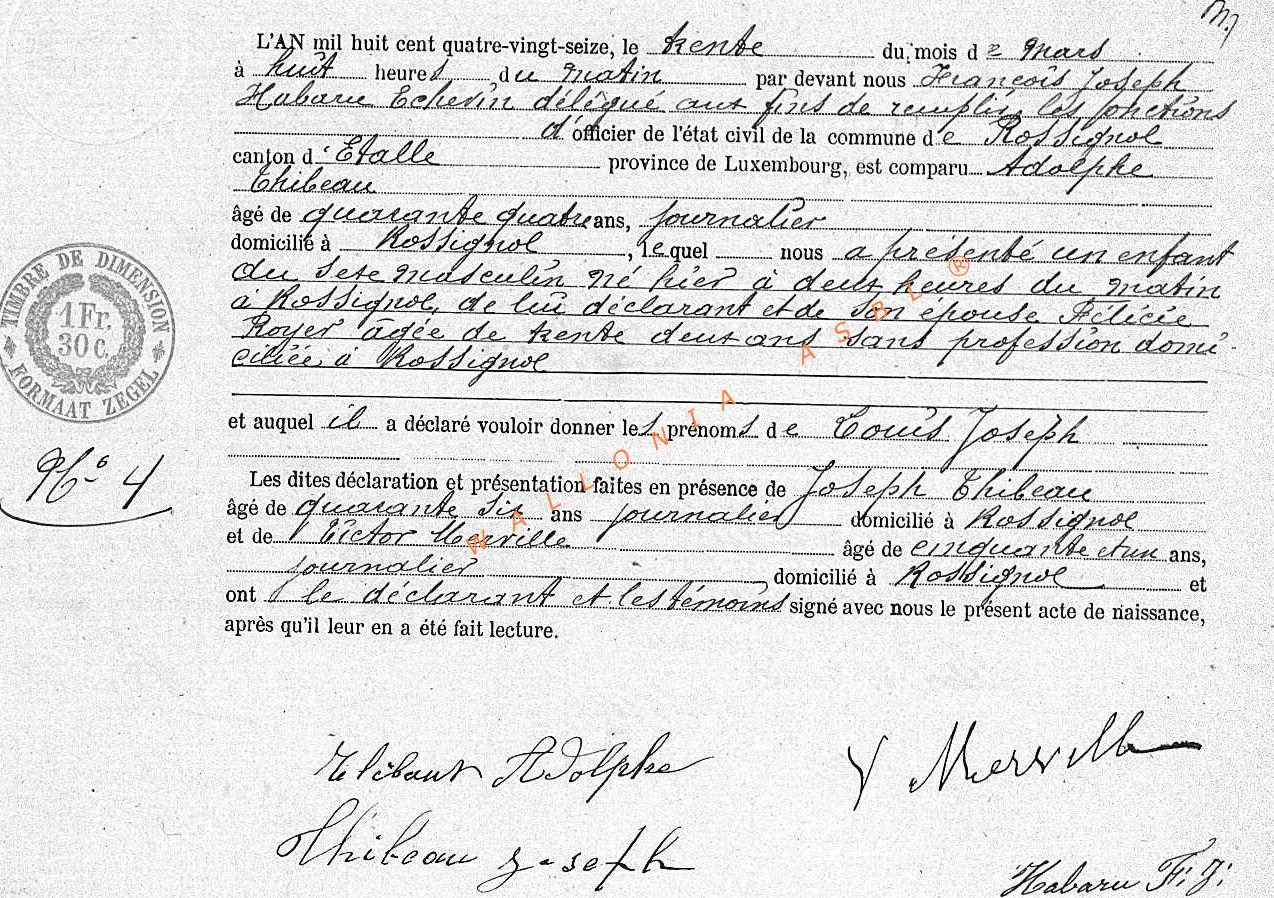 L'AN mil huit cent quatre-vingt-seize, le trente du mois de Mars
à huit heures du matin par devant nous François Joseph
Habaru Echevin délégué aux fins de remplir les fonctions
d'officier de l'état civil de la commune de Rossignol
canton d'Etalle province de Luxembourg, est comparu Adolphe
Thibeau
âgé de quarante quatre ans, journalier
domicilié à Rossignol, lequel nous a présenté un enfant
du sexe masculin né hier à deux heures du matin
à Rossignol, de lui déclarant et de son épouse Félicie
Royer âgée de trente deux ans sans profession domi-
ciliée à Rossignol
et auquel il a déclaré vouloir donner les prénoms de Louis Joseph
Les dites déclaration et présentation faites en présence de Joseph Thibeau
âgé de quarante six ans journalier domicilié à Rossignol
et de Victor Merville âgé de cinquante et un ans,
journalier, domicilié à Rossignol et
ont le déclarant et les témoins signé avec nous le présent acte de naissance,
après qu'il leur en a été fait lecture.
TIMBRE DE DIMENSION
1 Fr.
30 C.
FORMAAT ZEGEL
No 4
WALLONIA ASBL ®
Thibaut Adolphe
V Merville
Thibeau Joseph
Habaru F. J.